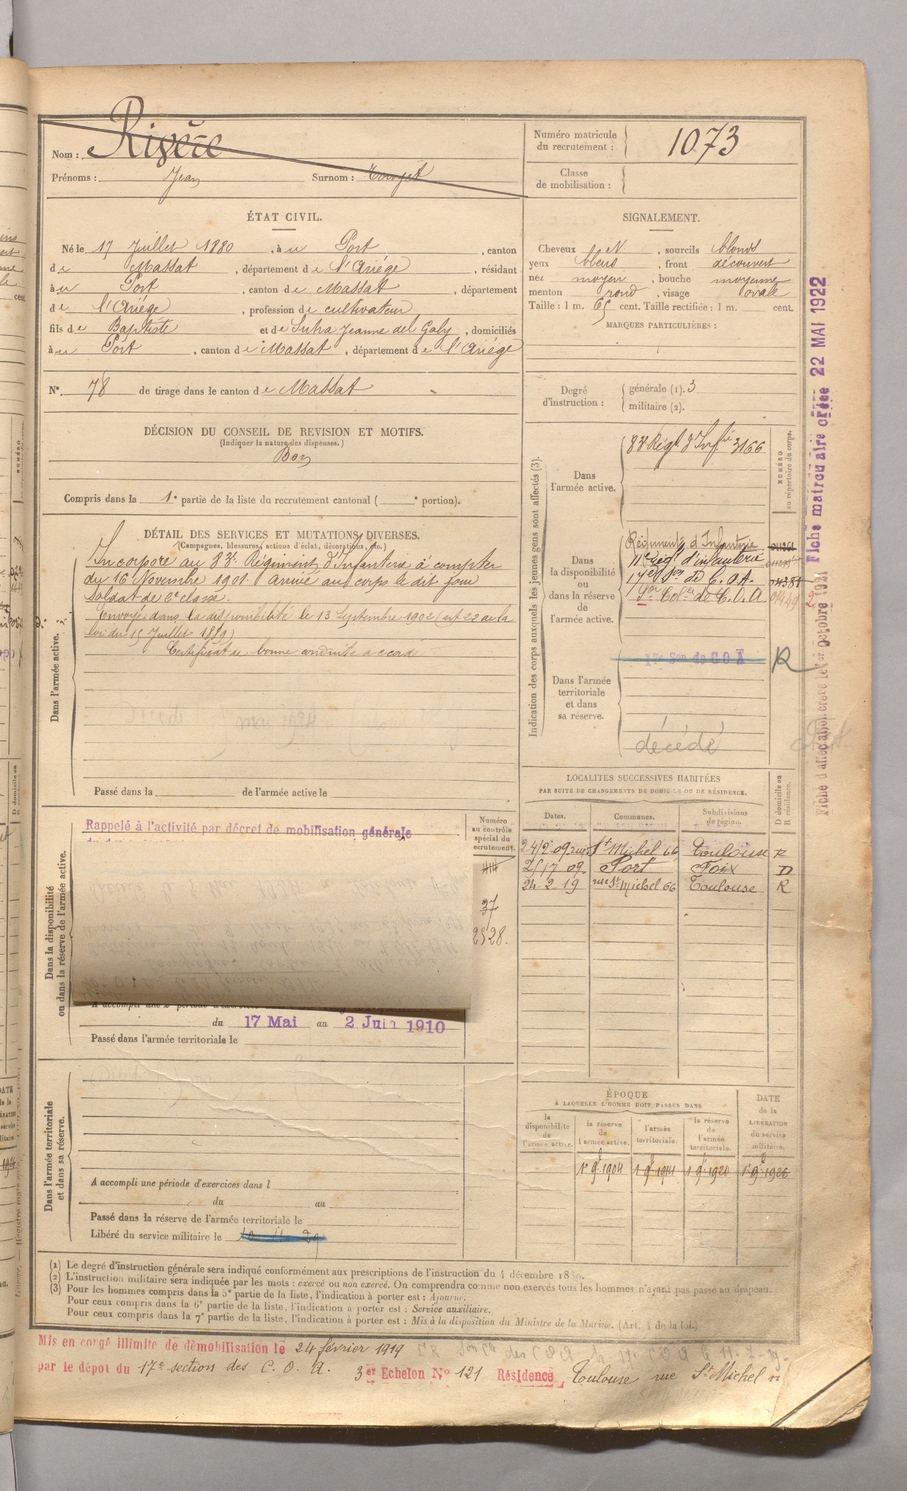 Nom : Rivère
Prénoms : Jean Surnom :
Numéro matricule du recrutement : 1073
Classe de mobilisation :
ÉTAT CIVIL.
Né le 17 Juillet 1880, à Port, canton
de Massat, département de l'Ariège, résidant
à Port, canton de Massat, département
de l'Ariège, profession de cultivateur
fils de Baptiste et de Suha Jeanne del Galy, domiciliés
à Port, canton de Massat, département de l'Ariège
N°. 78 de tirage dans le canton de Massat
DÉCISION DU CONSEIL DE REVISION ET MOTIFS.
(Indiquer la nature des dispenses.)
Bon
Compris dans la 1e partie de la liste du recrutement cantonal ( e portion).
SIGNALEMENT.
Cheveux N, sourcils blonds
yeux bleus, front découvert
nez moyen, bouche moyenne
menton rond, visage ovale
Taille : 1 m. 65 cent. Taille rectifiée : 1 m. cent.
MARQUES PARTICULIÈRES :
Degré d'instruction : générale (1). 3
militaire (2).
DÉTAIL DES SERVICES ET MUTATIONS DIVERSES.
(Campagnes, blessures, actions d'éclat, décorations, etc.)
Dans l'armée active.
Incorporé au 83e Régiment d'Infanterie à compter
du 16 Novembre 1901. Arrivé au corps le dit jour
soldat de 2e classe.
Envoyé dans la disponibilité le 13 Septembre 1902 (art 22 de la
loi du 15 Juillet 1889)
Certificat de bonne conduite accordé
Passé dans la de l'armée active le
Indication des corps auxquels les jeunes gens sont affectés (3).
NUMÉRO au répertoire du corps.
Dans l'armée active.
83 Régt d'Infie 3166
Dans la disponibilité ou dans la réserve de l'armée active.
Régiment d'Infanterie
Régt d'infanterie
17e Son de C.O.A.
de C.O.A
Dans l'armée territoriale et dans sa réserve.
17e Son de COA
R
décédé
Fiche d'affectation créée le 1er octobre 1921
Fiche matriculaire créée 22 MAI 1922
Dans la disponibilité ou dans la réserve de l'armée active.
Rappelé à l'activité par décret de mobilisation générale
Numéro au contrôle spécial du recrutement.
37
2828.
du 17 Mai au 2 Juin 1910
Passé dans l'armée territoriale le
LOCALITÉS SUCCESSIVES HABITÉES
PAR SUITE DE CHANGEMENTS DE DOMICILE OU DE RÉSIDENCE.
Dates. Communes. Subdivisions de région. D domicile ou R résidence.
24/2 09 rue St Michel 66 Toulouse R
09. Port Foix D
24. 2. 19 rue St Michel 66 Toulouse R
Dans l'armée territoriale et dans sa réserve.
A accompli une période d'exercices dans l
du au
Passé dans la réserve de l'armée territoriale le
Libéré du service militaire le
ÉPOQUE
À LAQUELLE L'HOMME DOIT PASSER DANS
la disponibilité de l'armée active.
la réserve de l'armée active.
l'armée territoriale.
la réserve de l'armée territoriale.
DATE de la LIBÉRATION du service militaire.
1er 9bre 1904 1er 9bre 1914 1er 9bre 1920 1er 9bre 1926
(1) Le degré d'instruction générale sera indiqué conformément aux prescriptions de l'instruction du 4 décembre 1889.
(2) L'instruction militaire sera indiquée par les mots : exercé ou non exercé. On comprendra comme non exercés tous les hommes n'ayant pas passé au drapeau.
(3) Pour les hommes compris dans la 5e partie de la liste, l'indication à porter est : Ajourné.
Pour ceux compris dans la 6e partie de la liste, l'indication à porter est : Service auxiliaire.
Pour ceux compris dans la 7e partie de la liste, l'indication à porter est : Mis à la disposition du Ministre de la Marine. (Art. 4 de la loi.)
Mis en congé illimité de démobilisation le 24 février 1919
par le dépôt du 17e section des C.O.A. 3er Echelon No 121 Résidence Toulouse rue St Michel